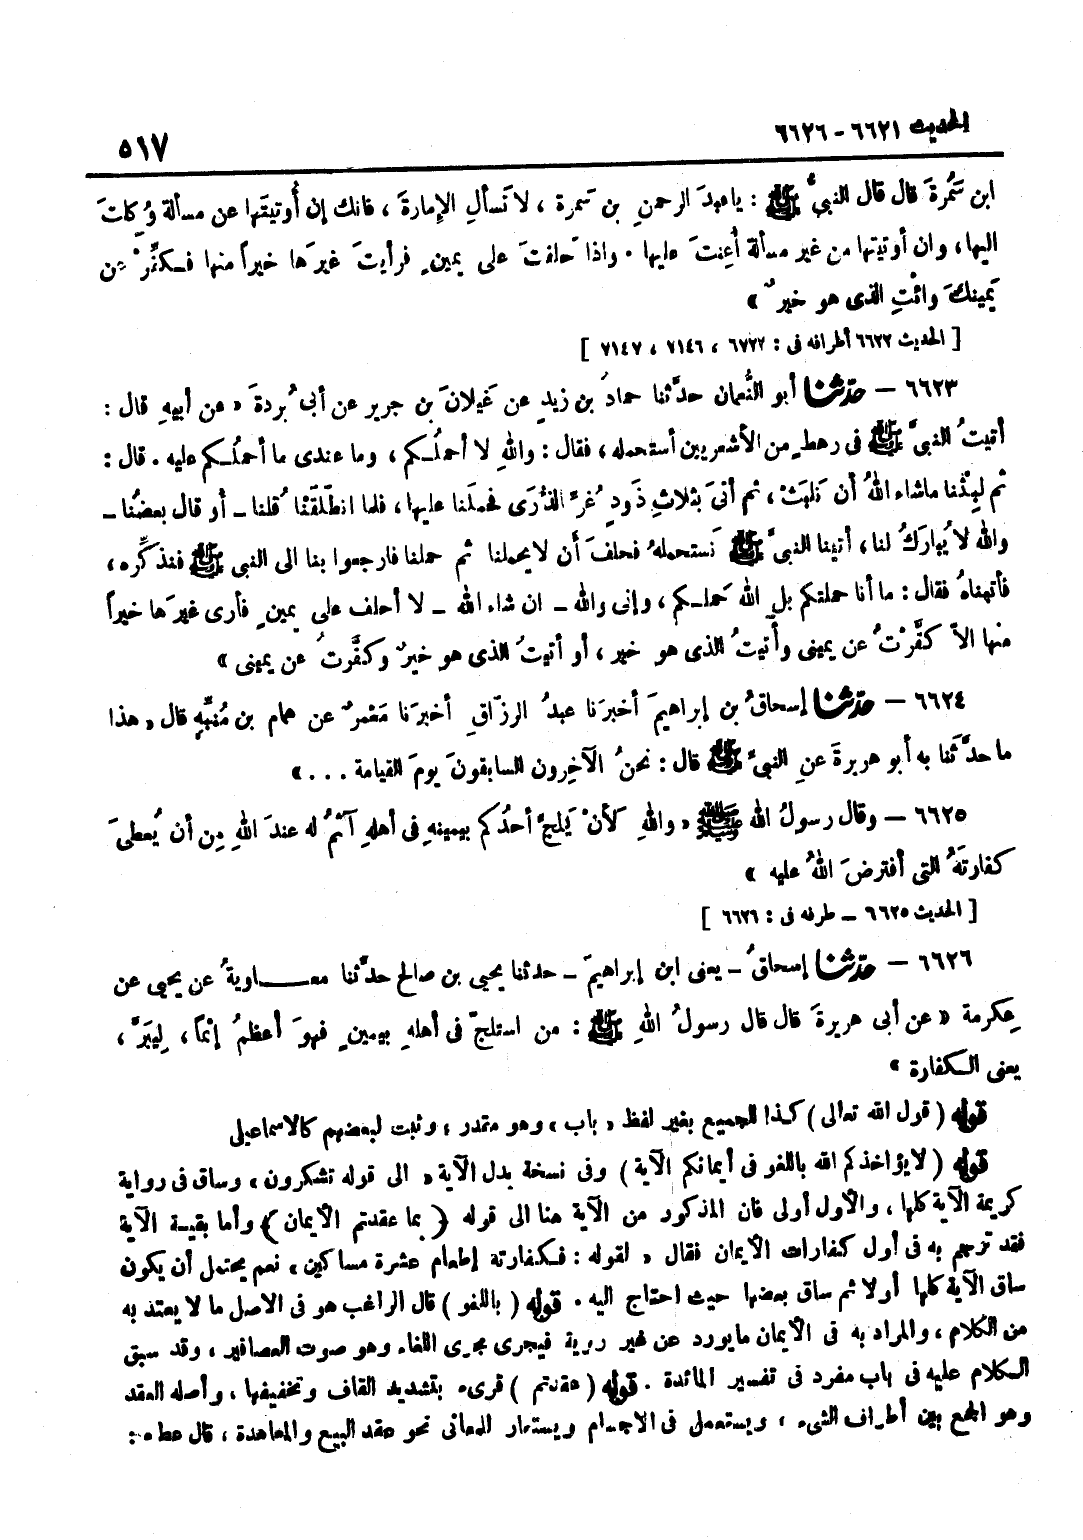 الحديث ٦٦٢١ - ٦٦٢٦
٥١٧
ابن سَمُرةَ قال قال النبيُّ ﷺ : ياعبدَ الرحمنِ بن سَمرة ، لا تَسألِ الإِمارةَ ، فانك إن أُوتيتَها عن مسألة وُكِلتَ
اليها، وان أُوتيتها من غير مسألة أُعِنتَ عليها . واذا حَلفتَ على يمينٍ فرأيتَ غيرَها خيراً منها فـكفِّرْ عن
يَمينكَ وائْتِ الذى هو خيرٌ »
[ الحديث ٦٦٢٢ أطرافه فى : ٦٧٢٢ ، ٧١٤٦ ، ٧١٤٧ ]
٦٦٢٣ – حدّثنا أبو النُّعمان حدَّثنا حمادُ بن زيدٍ عن غَيلانَ بن جرير عن أبى بُردةَ « عن أبيهِ قال :
أتيتُ النبىَّ ﷺ فى رهطٍ من الأشعريين أستحمله ، فقال : واللهِ لا أحملُـكم ، وما عندى ما أحملُـكم عليه . قال :
ثم لبِثْنا ماشاء اللهُ أن نَلبَثَ ، ثم أتىَ بثلاثِ ذَودٍ غُرِّ الذُّرَى فحملَنا عليها ، فلما انطلَقْنا قُلنا ـ أو قال بعضُنا ـ
والله لا يُبارَكُ لنا ، أتينا النبىَّ ﷺ نَستحملهُ فحلفَ أن لايحملنا ثم حملنا فارجعوا بنا الى النبى ﷺ فنذكِّره ،
فأتيناهُ فقال : ما أنا حملتكم بلِ اللهُ حَملـكم ، وإنى والله ـ ان شاء الله ـ لا أحلف على يمينٍ فأرى غيرَها خيراً
منها الاّ كفَّرْتُ عن يمينى وأتيتُ الذى هو خير ، أو أتيتُ الذى هو خيرٌ وكفَّرتُ عن يمينى »
٦٦٢٤ – حدّثنا إسحاقُ بن إبراهيمَ أخبرَنا عبدُ الرزّاقِ أخبرَنا مَعْمرٌ عن همام بن مُنبِّهٍ قال « هذا
ما حدَّثَنا به أبو هريرةَ عنِ النبىِّ ﷺ قال : نحنُ الآخِرون السابقونَ يومَ القيامة . . . »
٦٦٢٥ – وقال رسولُ الله ﷺ « واللهِ لَأنْ يَلجَّ أحدُكم بيمينهِ فى أهلهِ آثَمُ له عندَ اللهِ مِن أن يُعطىَ
كفارتَهُ التى أفترضَ اللهُ عليه »
[ الحديث ٦٦٢٥ ـ طرفه فى : ٦٦٢٦ ]
٦٦٢٦ – حدّثنا إسحاقُ ـ يعنى ابن إبراهيمَ ـ حدثنا يحيى بن صالح حدَّثنا معـــاويةُ عن يحيى عن
عِكرمة « عن أبى هريرةَ قال قال رسولُ اللهِ ﷺ : من استلجّ فى أهلهِ بيمينٍ فهوَ أعظمُ إثماً ، لِيَبَرَّ ،
يعنى الـكفارة »
قوله ( قول الله تعالى ) كـذا للجميع بغير لفظ « باب » وهو مقدر ، وثبت لبعضهم كالاسماعيلى
قوله ( لا يؤاخذكم الله باللغو فى أيمانكم الآية ) وفى نسخة بدل الآية « الى قوله تشكرون » وساق فى رواية
كريمة الآية كلها ، والأول أولى فان المذكور من الآية هنا الى قوله ﴿ بما عقدتم الأيمان ﴾ وأما بقيـة الآية
فقد ترجم به فى أول كفارات الأيمان فقال « لقوله : فـكفارته إطعام عشرة مساكين » نعم يحتمل أن يكون
ساق الآية كلها أولا ثم ساق بعضها حيث احتاج اليه . قوله ( باللغو ) قال الراغب هو فى الاصل ما لا يعتد به
من الكلام ، والمراد به فى الأيمان مايورد عن غير روية فيجرى مجرى اللغاء وهو صوت العصافير ، وقد سبق
الـكلام عليه فى باب مفرد فى تفسير المائدة . قوله ( عقدتم ) قرىء بتشديد القاف وتخفيفها ، وأصله العقد
وهو الجمع بين أطراف الشىء ، ويستعمل فى الاجسام ويستعار للمعانى نحو عقد البيع والمعاهدة ، قال عطاء :